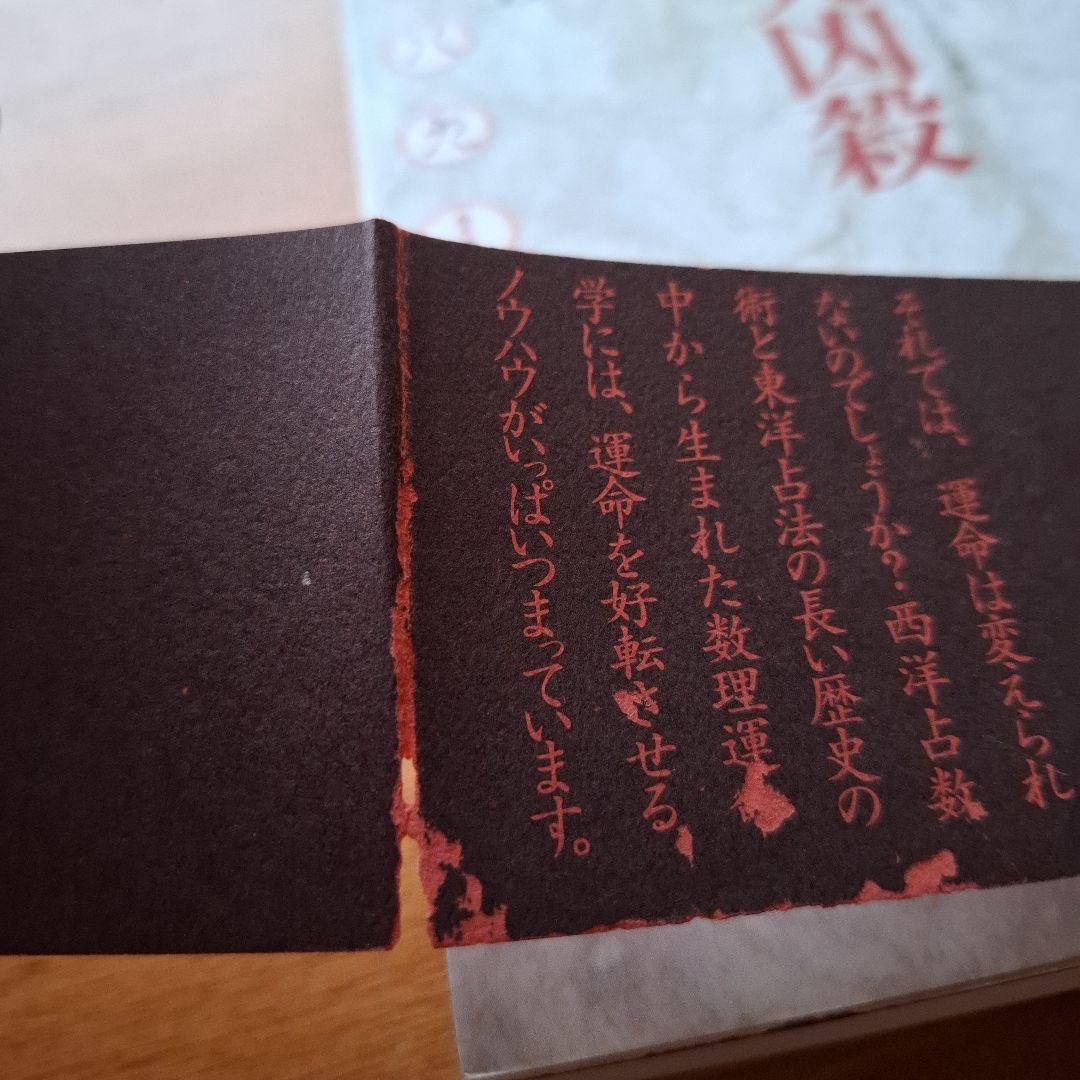 それでは、運命は変えられ
ないのでしょうか?西洋占数
術と東洋占法の長い歴史の
中から生まれた数理運命
学には、運命を好転させる
ノウハウがいっぱいつまっています。
凶殺
火
穴